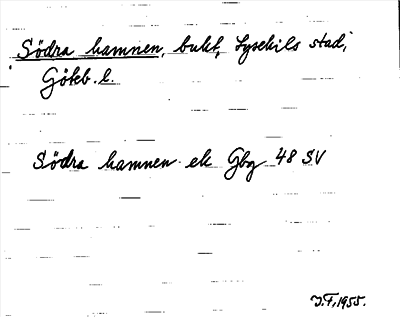 Södra hamnen, bukt, Lysekils stad,
Göteb. l.
Södra hamnen ek Gbg 48 SV
J.F. 1955.